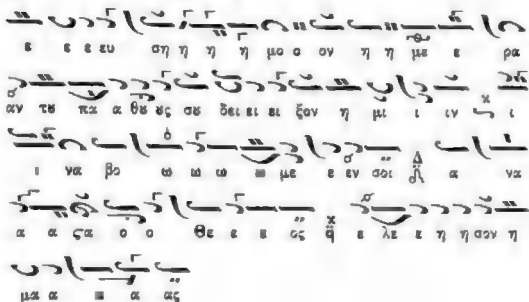 ε ε ε ευ ση η η η η μο ο ον η η με ε ρα
αν τȣ πα α θȣ ȣς σȣ δει ει ει ξον η μι ι ιν ι
ι να βο ω ω ω με ε εν σοι α να
α α ϛα ο ο Θε ε ε ος ε λε ε η η σον η
μα α α ας